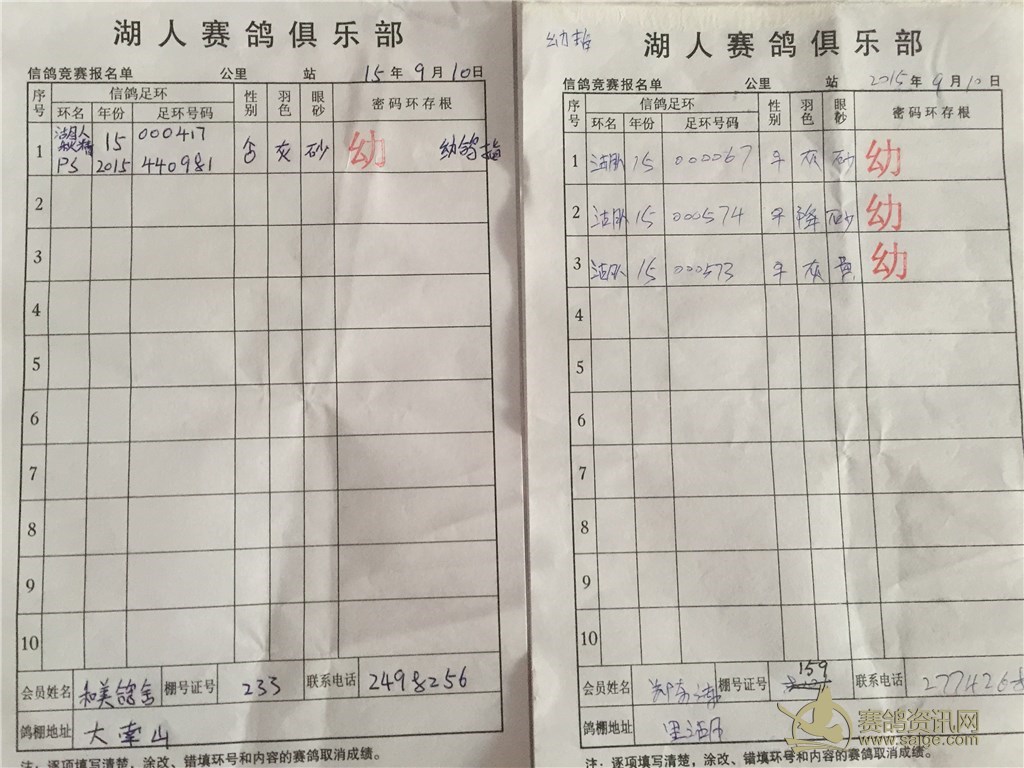 湖人赛鸽俱乐部
信鸽竞赛报名单 公里 站 15年9月10日
序号 信鸽足环 性别 羽色 眼砂 密码环存根
环名 年份 足环号码
1 湖人 15 000417 灰 砂 幼 幼鸽指
PS 2015 440981
2
3
4
5
6
7
8
9
10
会员姓名 和美鸽舍 棚号证号 233 联系电话 2498256
鸽棚地址 大南山
注:逐项填写清楚,涂改、错填环号和内容的赛鸽取消成绩。
幼指
湖人赛鸽俱乐部
信鸽竞赛报名单 公里 站 2015年9月10日
序号 信鸽足环 性别 羽色 眼砂 密码环存根
环名 年份 足环号码
1 15 000067 平 灰 砂 幼
2 15 000574 平 降 砂 幼
3 15 000573 平 灰 黄 幼
4
5
6
7
8
9
10
会员姓名 棚号证号 159 联系电话 2774268
鸽棚地址
注:逐项填写清楚,涂改、错填环号和内容的赛鸽取消成绩。
赛鸽资讯网
www.saige.com